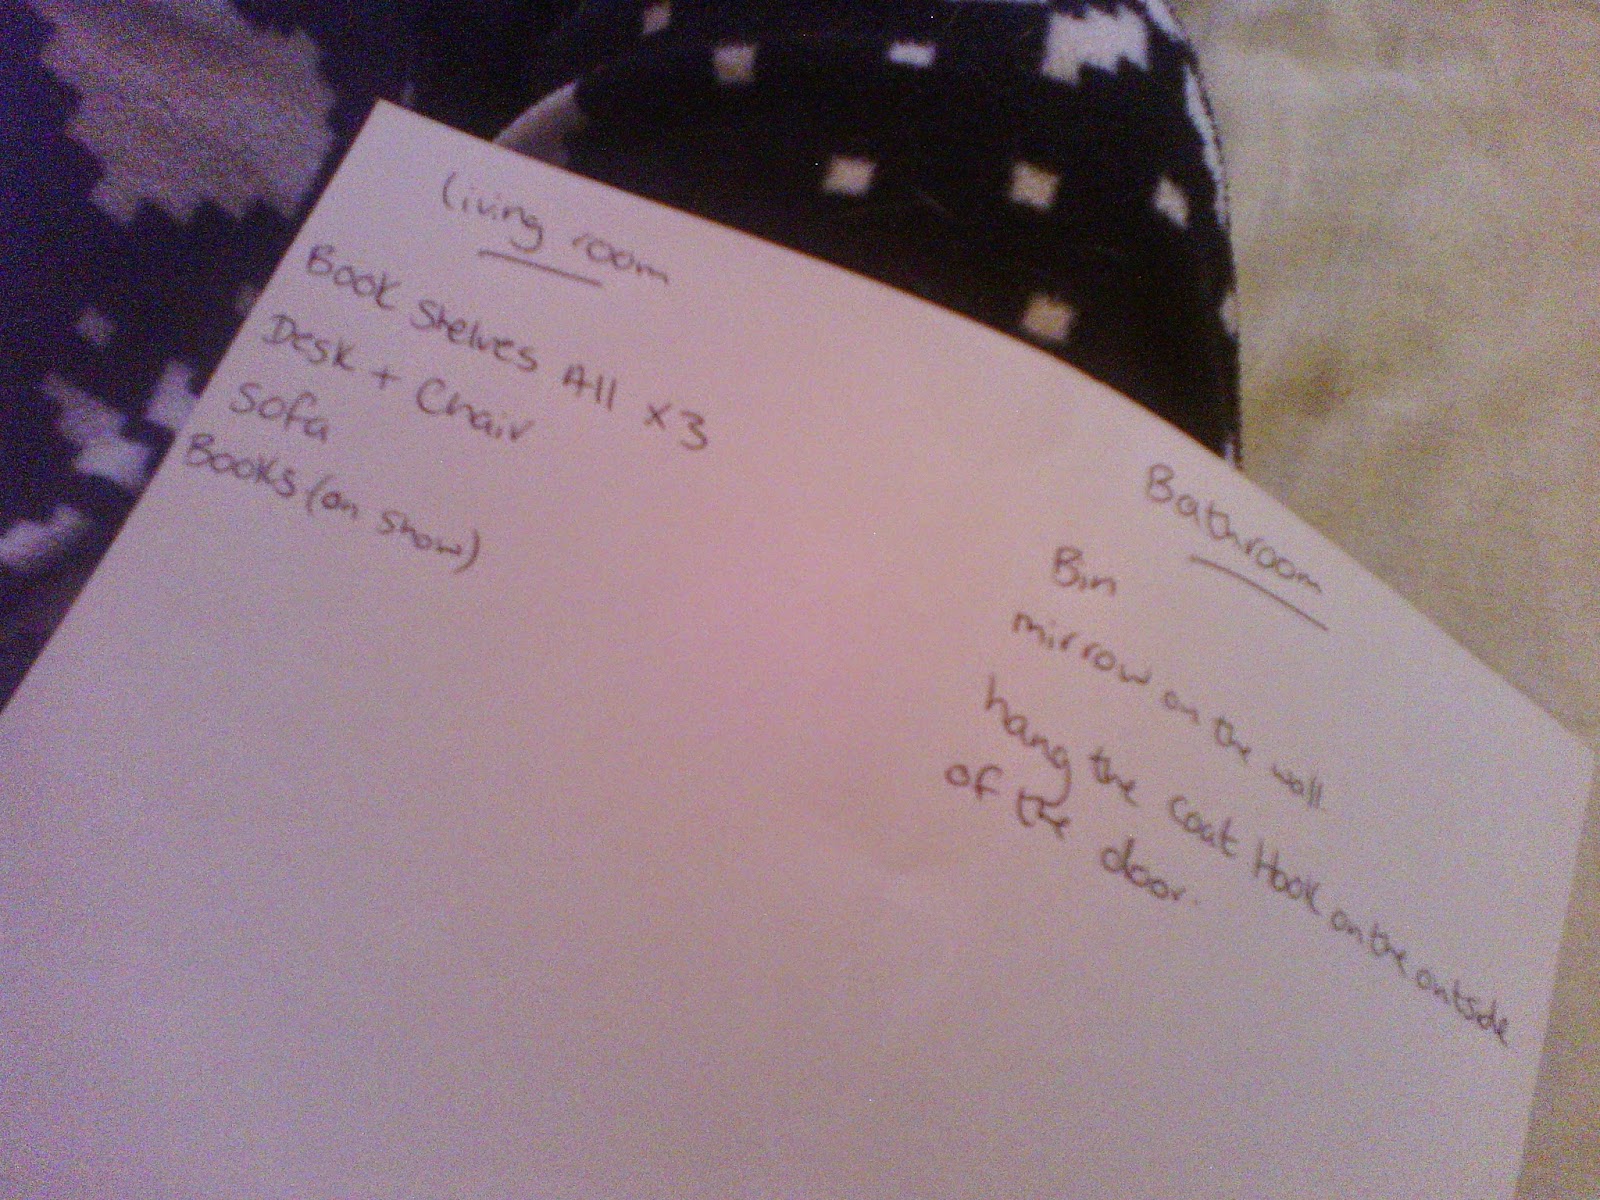 living room
Book shelves All x3
Desk + Chair
Sofa
Books (on show)
Bathroom
Bin
mirrow on the wall.
hang the coat Hook on the outside
of the door.